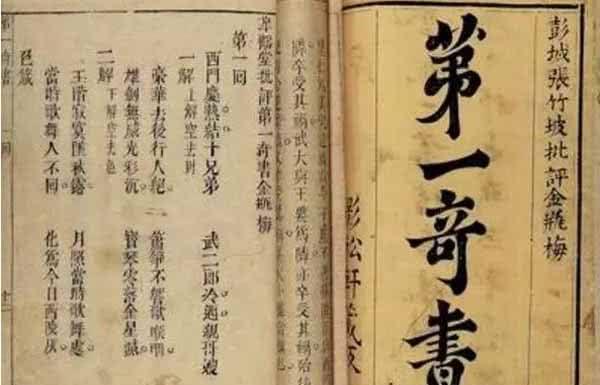 彭城張竹坡批評金瓶梅
第一奇書
影松軒
卒受其禍武大與王婆為隣亦卒受其禍
皋鶴堂批評第一奇書金瓶梅
第一回
西門慶熱結十兄弟 武二郎冷遇親哥嫂
一解 上解空去財
豪華去後行人絕 簫箏不響歌喉咽
雄劍無威光彩沉 寶琴零落金星滅
二解 下解空去色
玉階寂寞墜秋露 月照當時歌舞處
當時歌舞人不回 化為今日西陵灰
色箴
第一奇書